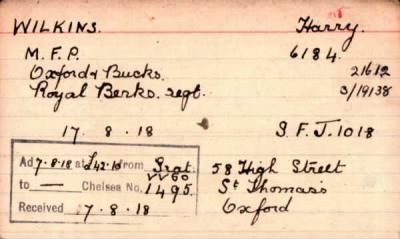 WILKINS. Harry.
M.F.P. 6184.
Oxford & Bucks. 21612
Royal Berks. regt. 3/19138
17. 8. 18 S.F.J. 1018
Ad 7.8.18 at £42.10 from Grat. 58 High Street
to — Chelsea No. 1495. St Thomas's
Received 7.8.18 Oxford